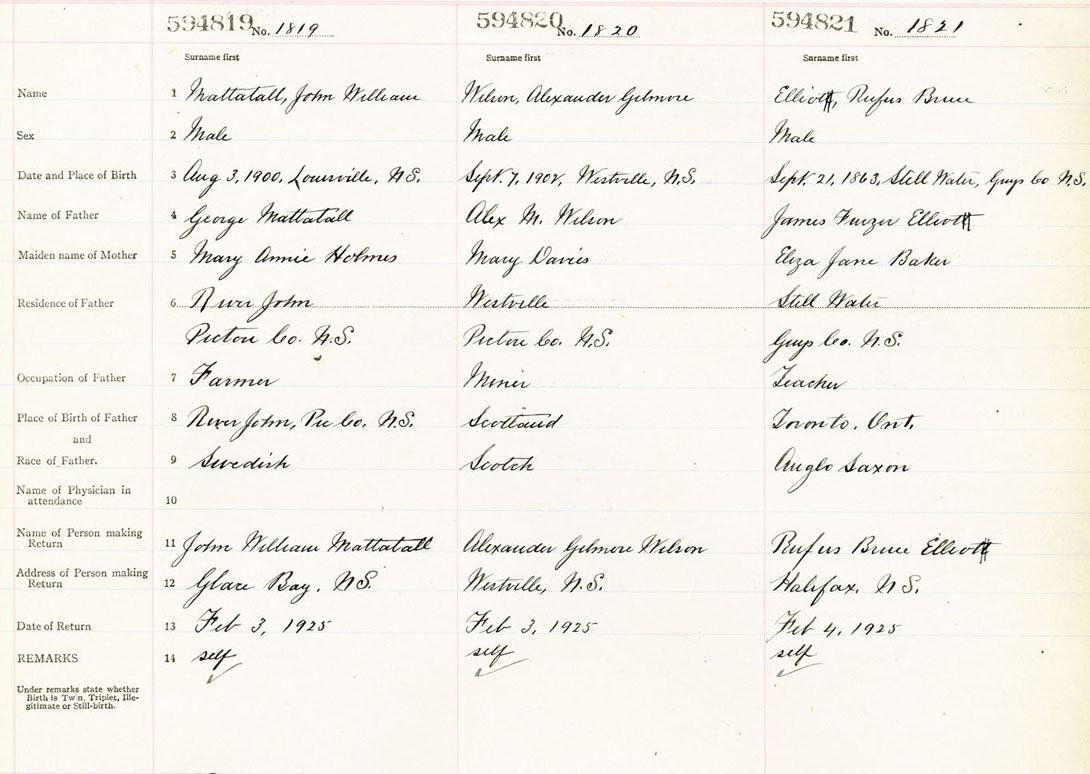 594819 No. 1819 594820 No. 1820 594821 No. 1821
Surname first Surname first Surname first
Name 1 Mattatall, John William Wilson, Alexander Gilmore Elliott, Rufus Bruce
Sex 2 Male Male Male
Date and Place of Birth 3 Aug 3, 1900, Louisville, N.S. Sept. 7, 1902, Westville, N.S. Sept. 21, 1863, Still Water, Guys Co N.S.
Name of Father 4 George Mattatall Alex M. Wilson James Elliott
Maiden name of Mother 5 Mary Annie Holmes Mary Davies Eliza Jane Baker
Residence of Father 6 River John Westville Still Water
Pictou Co. N.S. Pictou Co. N.S. Guys Co. N.S.
Occupation of Father 7 Farmer Miner Teacher
Place of Birth of Father 8 River John, Pic Co. N.S. Scotland Toronto, Ont.
and
Race of Father. 9 Swedish Scotch Anglo Saxon
Name of Physician in
attendance 10
Name of Person making
Return 11 John William Mattatall Alexander Gilmore Wilson Rufus Bruce Elliott
Address of Person making
Return 12 Glace Bay, N.S. Westville, N.S. Halifax, N.S.
Date of Return 13 Feb 3, 1925 Feb 3, 1925 Feb 4, 1925
REMARKS 14 self self self
Under remarks state whether
Birth is Twin, Triplet, Ille-
gitimate or Still-birth.